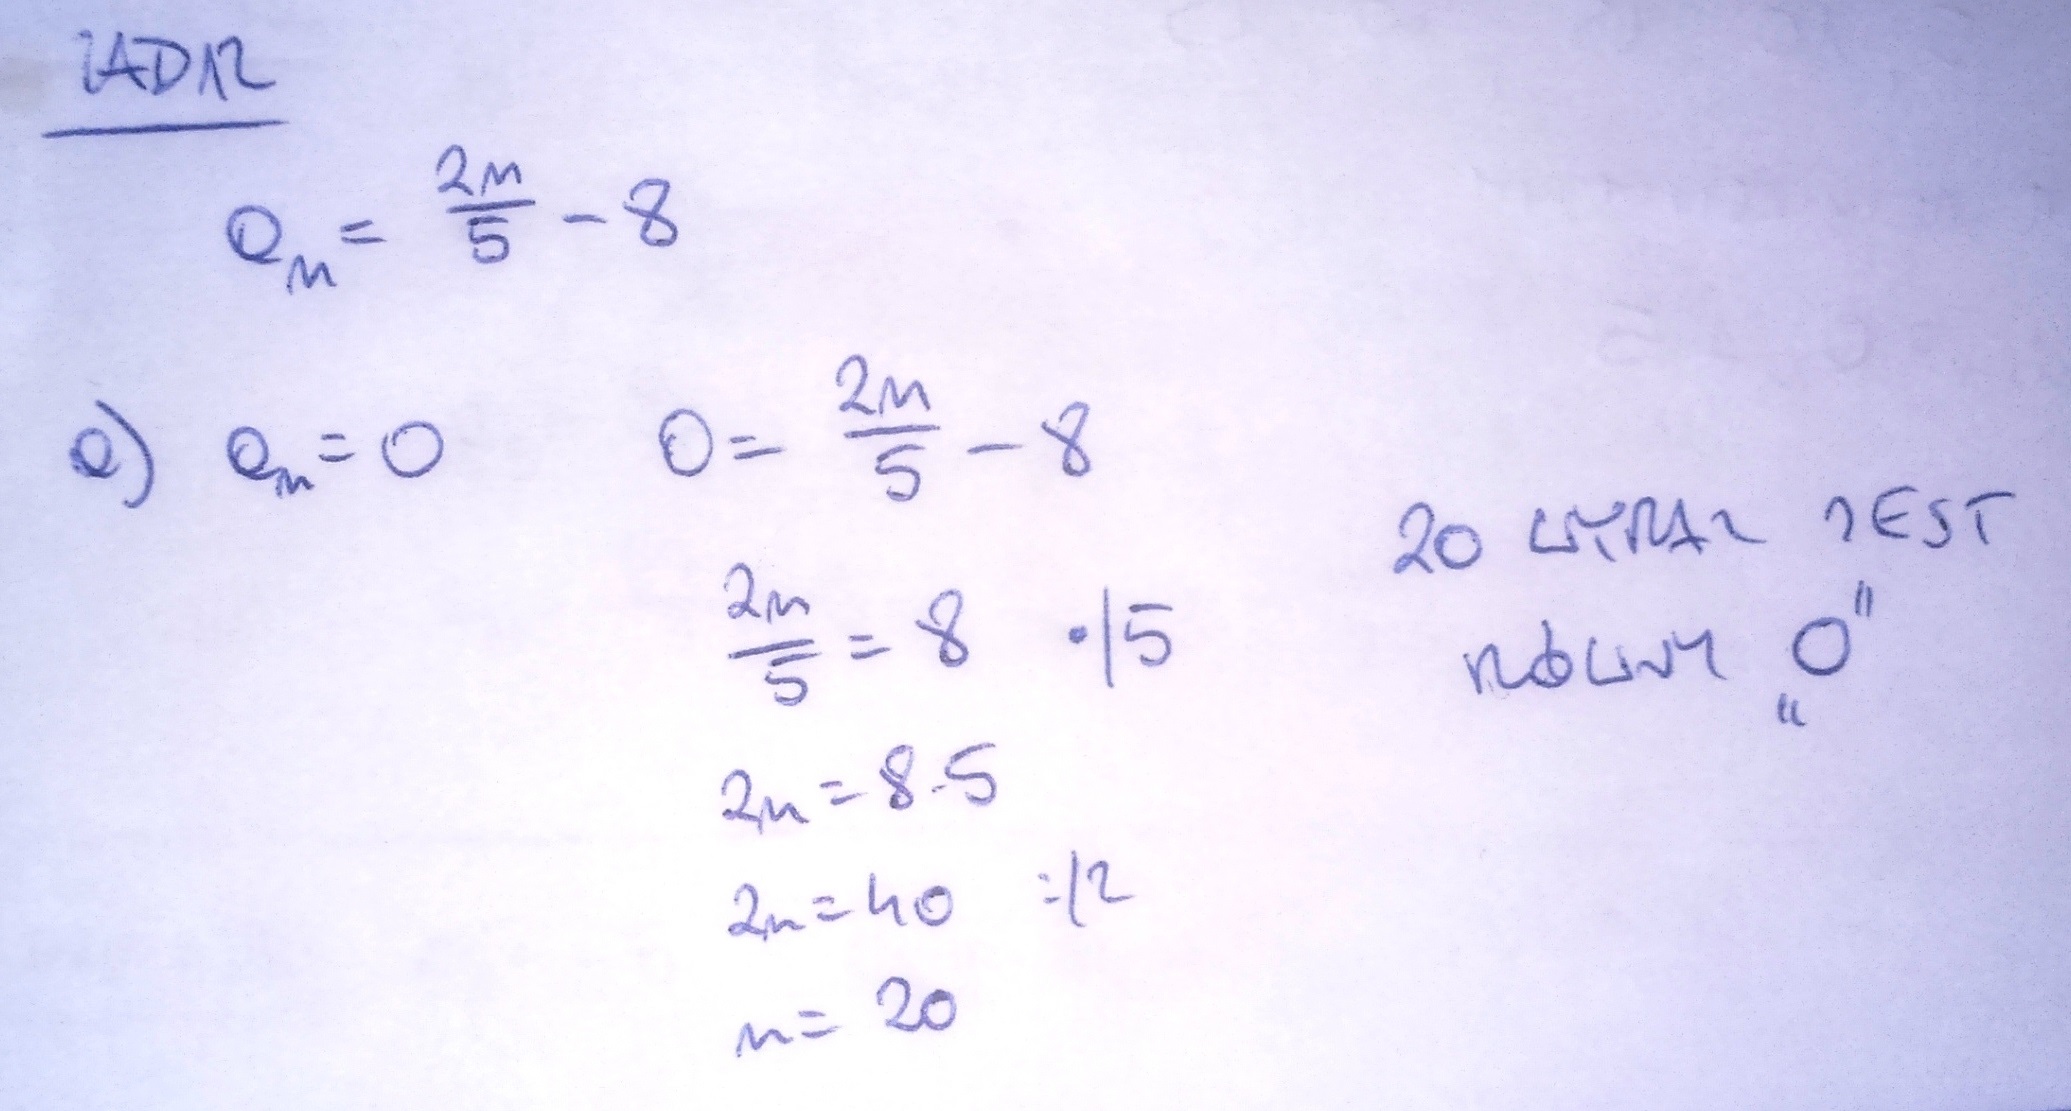 ZAD12
a_n = 2n/5 - 8
a) a_n = 0    0 = 2n/5 - 8
2n/5 = 8   ·|5
2n = 8·5
2n = 40   :|2
n = 20
20 WYRAZ JEST
RÓWNY „0”